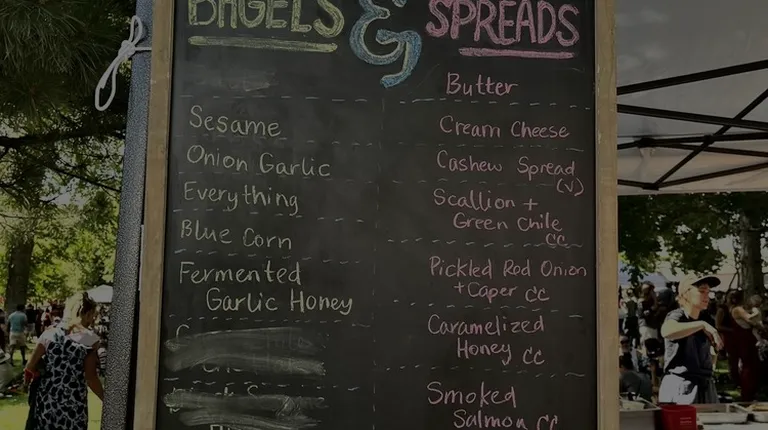 BAGELS & SPREADS
Sesame
Onion Garlic
Everything
Blue Corn
Fermented
Garlic Honey
Butter
Cream Cheese
Cashew Spread
(V)
Scallion +
Green Chile
CC
Pickled Red Onion
+ Caper CC
Caramelized
Honey CC
Smoked
Salmon CC